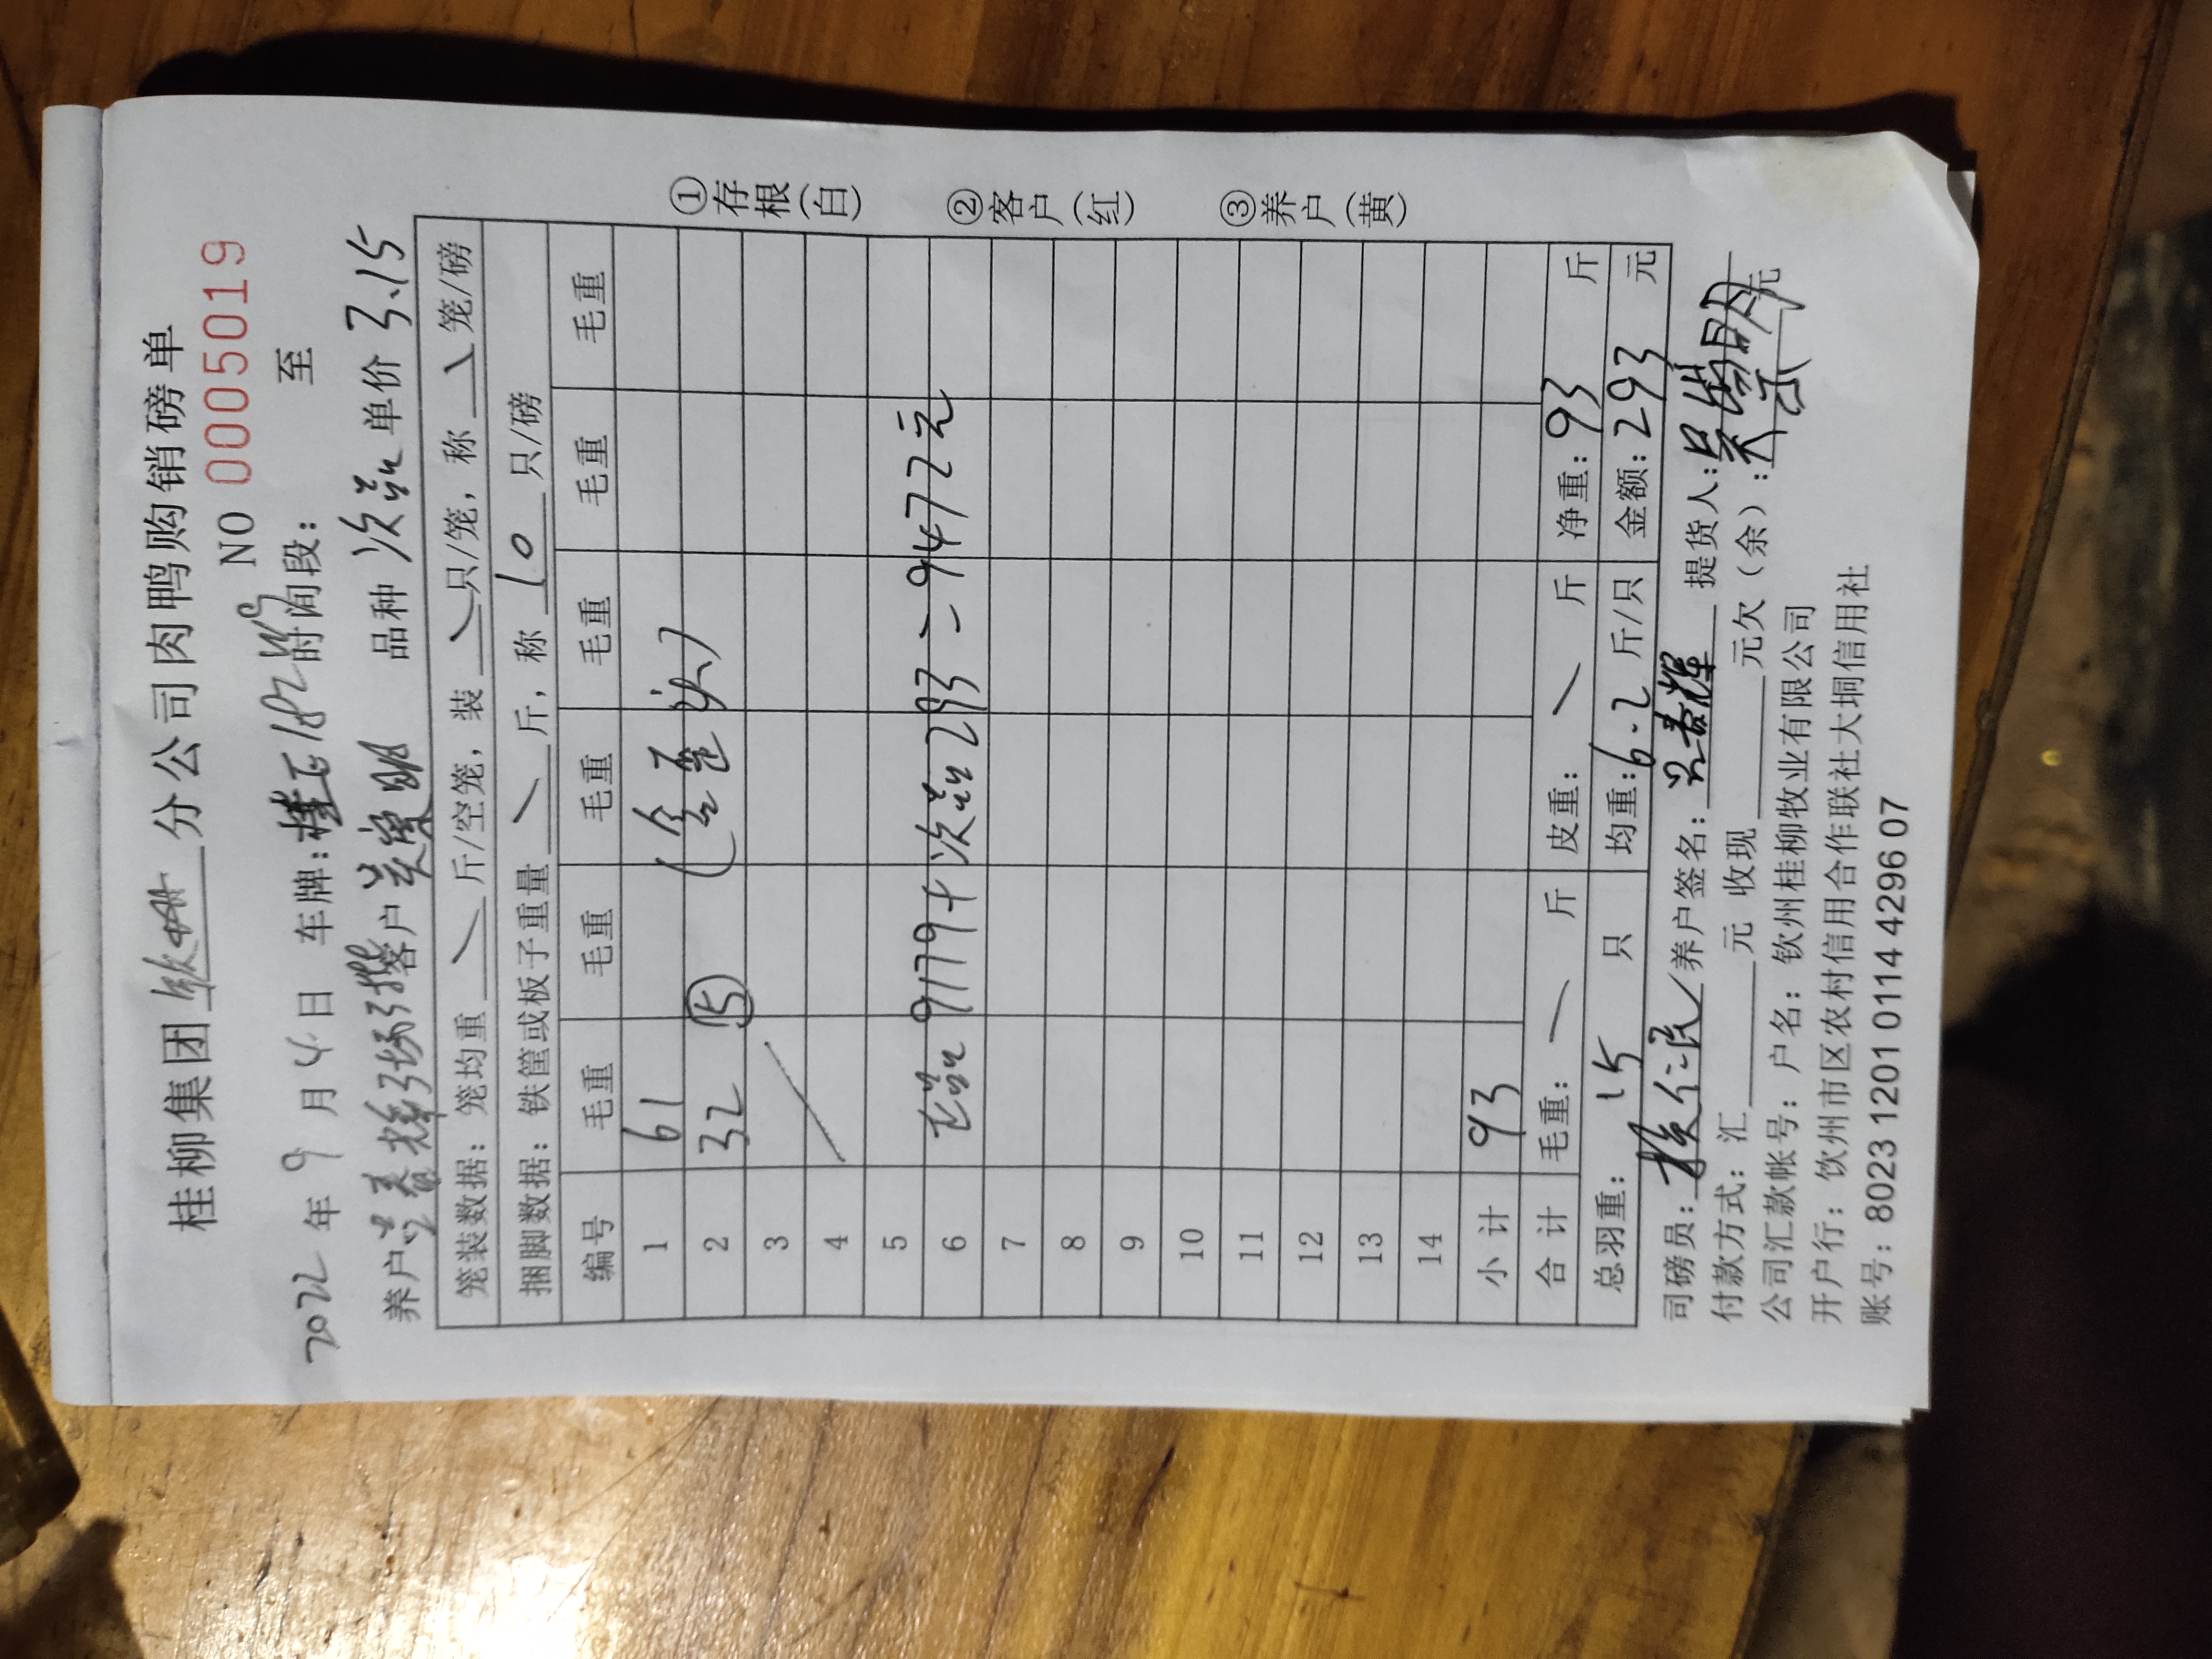 桂柳集团钦州分公司肉鸭购销磅单
NO 0005019
2022年9月4日 车牌: 时间段: 至
养户 客户 品种 次品 单价 3.15
笼装数据：笼均重 \ 斤/空笼，装 \ 只/笼，称 \ 笼/磅
捆脚数据：铁筐或板子重量 \ 斤，称 10 只/磅
编号 毛重 毛重 毛重 毛重 毛重 毛重
1 61
2 32 ⑮
3
4
5
6 正品 9179+次品293=9472元
7
8
9
10
11
12
13
14
小计 93
合计 毛重： \ 斤 皮重： \ 斤 净重：93 斤
总羽重：15 只 均重：6.2 斤/只 金额：293 元
司磅员： 养户签名： 提货人：
付款方式：汇 元 收现 元欠（余）： 元
公司汇款帐号：户名：钦州桂柳牧业有限公司
开户行：饮州市区农村信用合作联社大垌信用社
账号：8023 1201 0114 4296 07
①存根(白)
②客户(红)
③养户(黄)